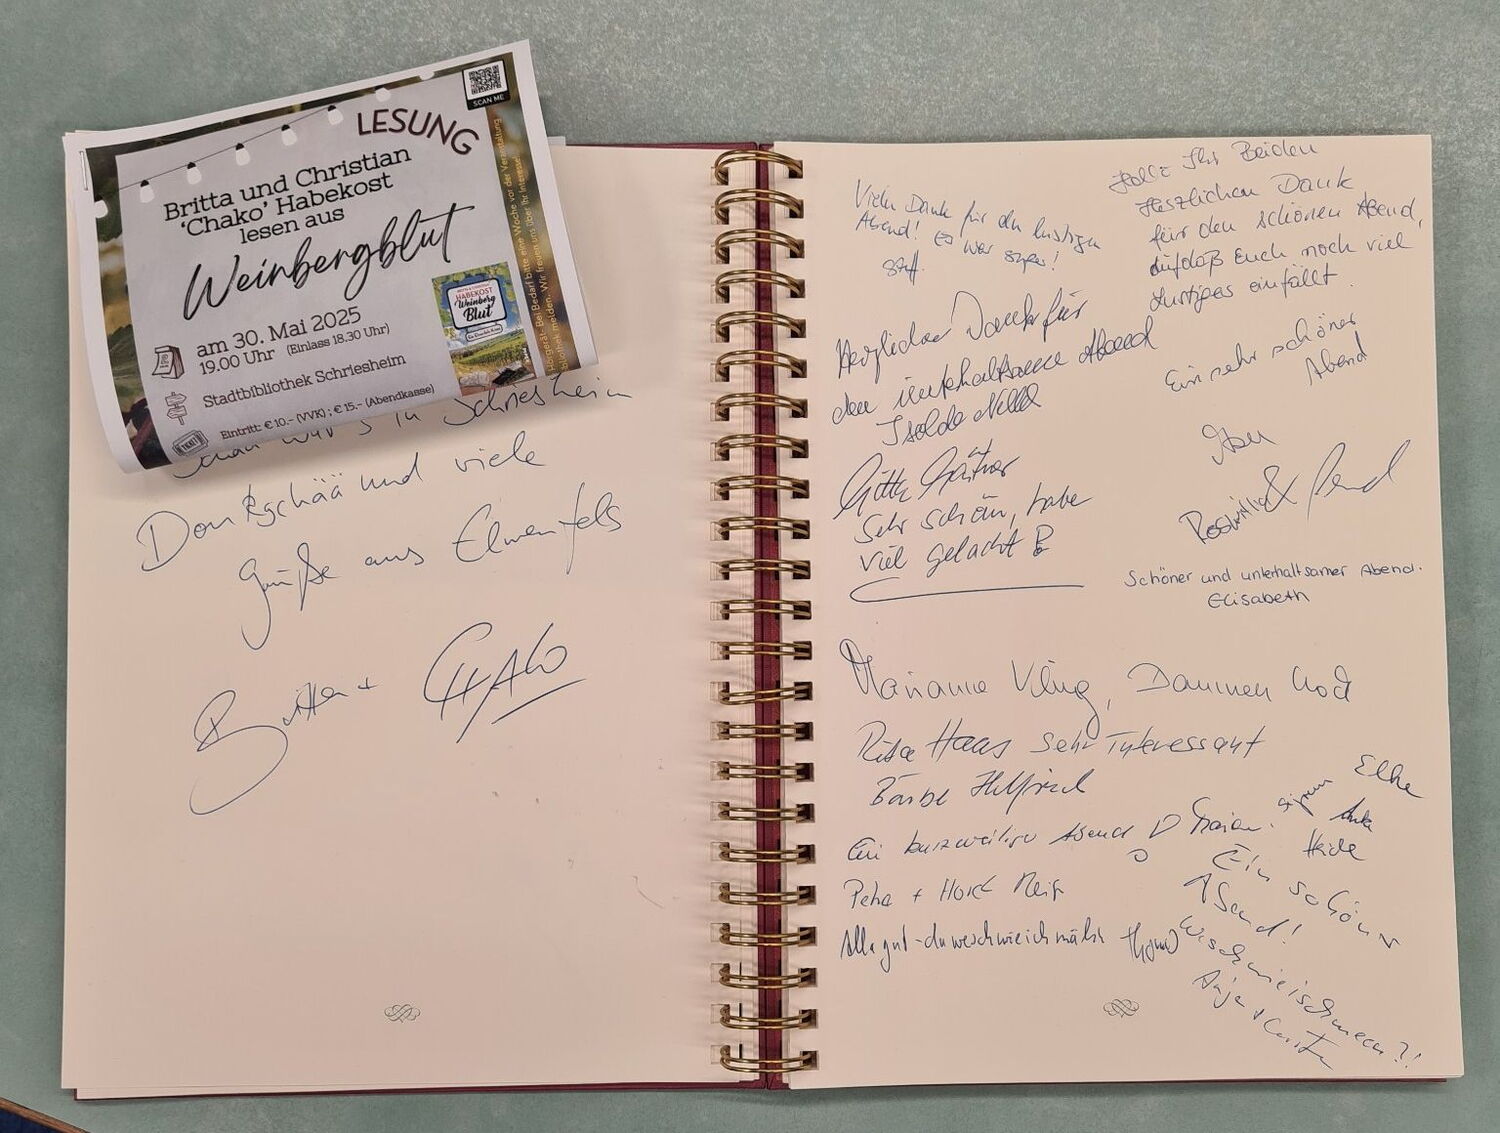 SCAN ME
LESUNG
Britta und Christian
‘Chako’ Habekost
lesen aus
Weinbergblut
am 30. Mai 2025
19.00 Uhr (Einlass 18.30 Uhr)
Stadtbibliothek Schriesheim
Eintritt: € 10.- (VVK) ; € 15.- (Abendkasse)
TICKET
HABEKOST
Weinberg
Blut
Hörgerät- Bei Bedarf bitte eine Woche vor der Veranstaltung
melden. Wir freuen uns über Ihr Interesse
war's in Schriesheim
Dankschää und viele
Grüße aus Elwenfels
Britta + CHAKO
Vielen Dank für den lustigen
Abend! Es war super!
Steff.
Hallo Ihr Beiden
Herzlichen Dank
für den schönen Abend,
Aufdaß Euch noch viel
Lustiges einfällt.
Herzlichen Dank für
den unterhaltsamen Abend
Isolde
Ein sehr schöner
Abend
Gitta Gärtner
Sehr schön, habe
viel gelacht
Schöner und unterhaltsamer Abend.
Elisabeth
Marianne
Rita Haas Sehr Interessant
Bärbel Helfrich
Ein kurzweiliger Abend
Elke
Anke
Heide
Petra + Horst
Ein schöner
Abend!
Alla gut - du weschwieichmähn Thomas
Wischmieischmeen?!
Anja + Carsten